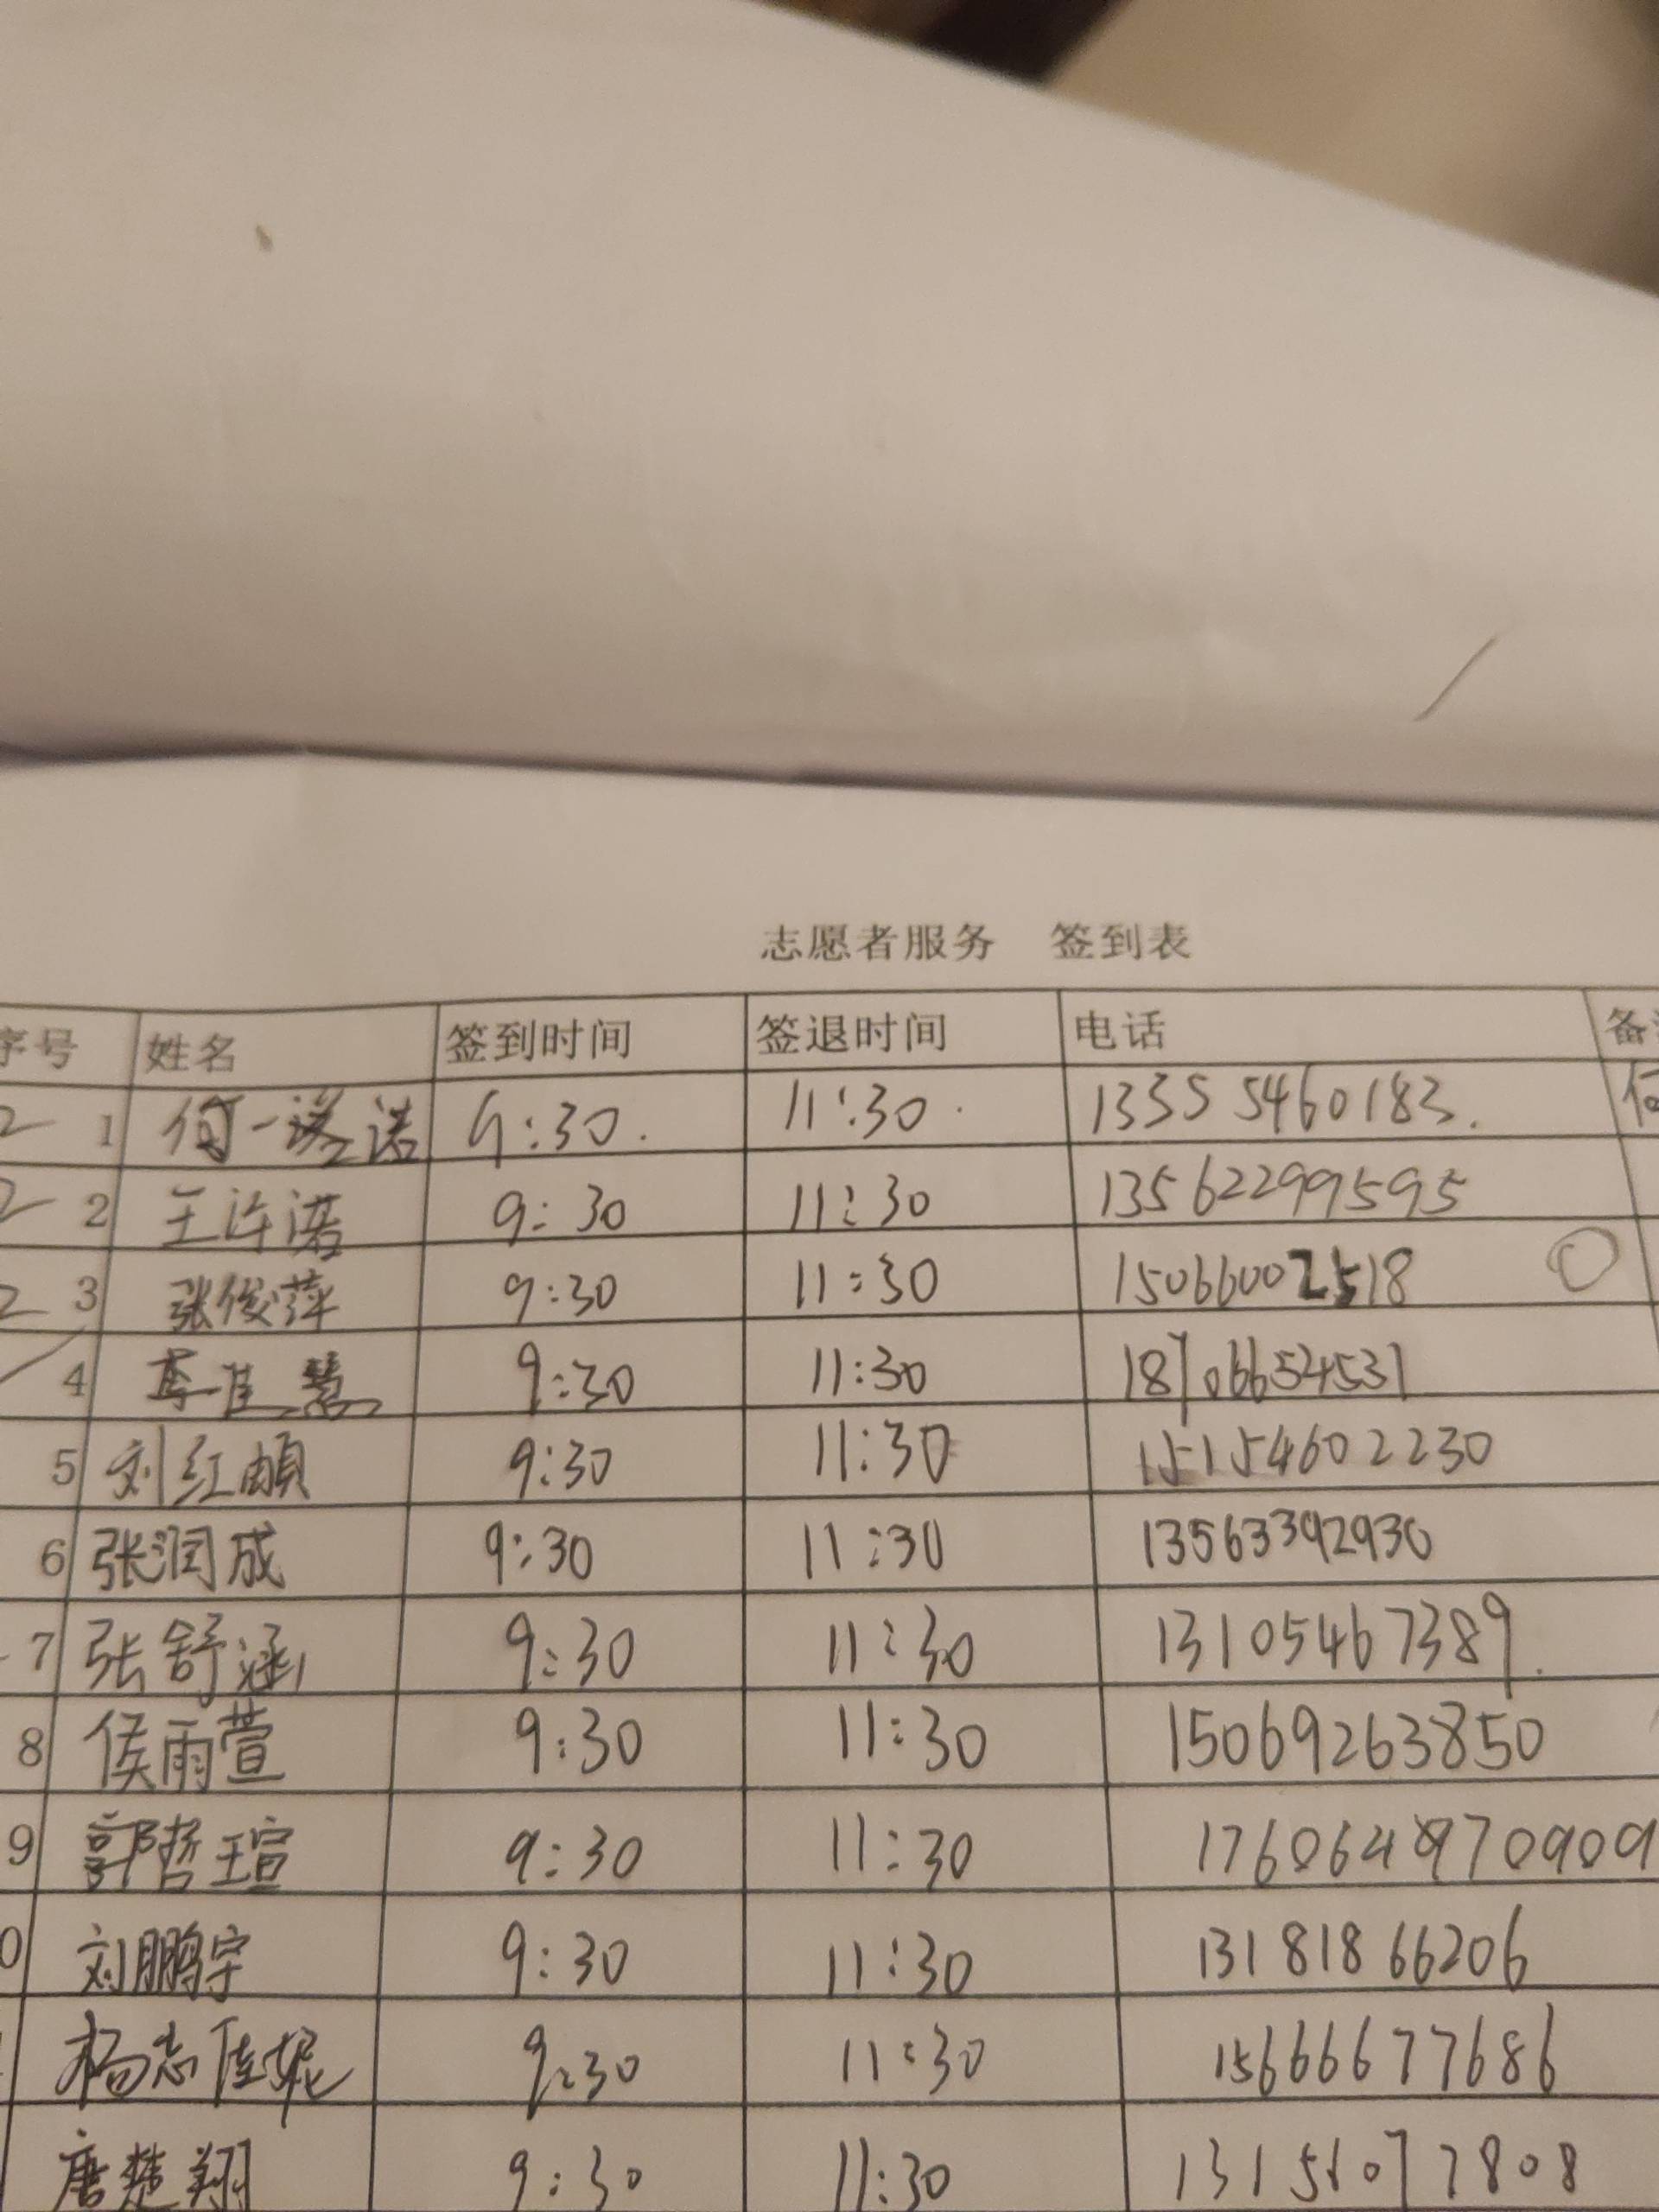 志愿者服务 签到表
序号 姓名 签到时间 签退时间 电话 备
1 何一诺 9:30. 11:30. 13355460183. 何
2 王许诺 9:30 11:30 13562299595
3 张俊萍 9:30 11:30 15066002518
4 李佳慧 9:30 11:30 18706654531
5 刘红 9:30 11:30 15154602230
6 张润成 9:30 11:30 13563392930
7 张舒涵 9:30 11:30 13105467389.
8 侯雨萱 9:30 11:30 15069263850
9 郭哲瑄 9:30 11:30
0 刘鹏宇 9:30 11:30 13181866206
杨志佳妮 9:30 11:30 15666677686
唐楚翔 9:30 11:30